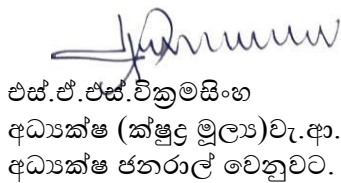 එස්.ඒ.එස්.වික්‍රමසිංහ
අධ්‍යක්ෂ (ක්ෂුද්‍ර මූල්‍ය)වැ.ආ.
අධ්‍යක්ෂ ජනරාල් වෙනුවට.